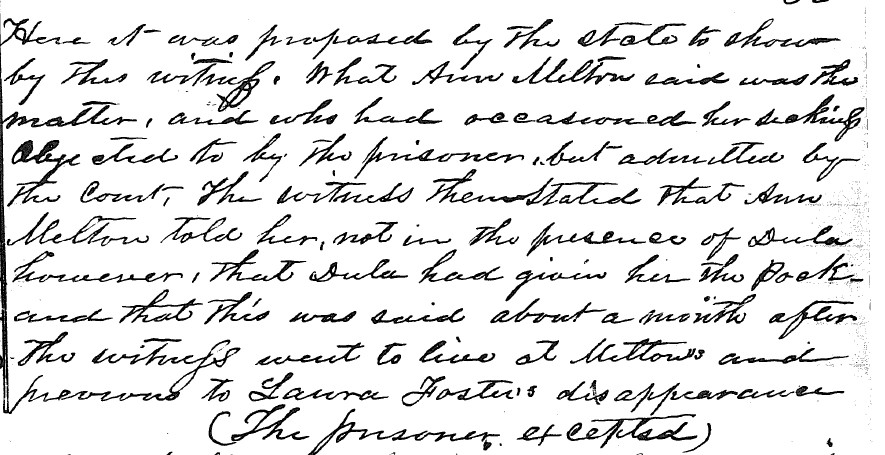 Here it was proposed by the state to show
by this witness. What Ann Melton said was the
matter, and who had occasioned her sickness
Objected to by the prisoner, but admitted by
the Court, The witness then stated that Ann
Melton told her, not in the presence of Dula
however, that Dula had given her the Pock-
and that this was said about a month after
the witness went to live at Melton's and
previous to Laura Foster's disappearance
(The prisoner excepted)